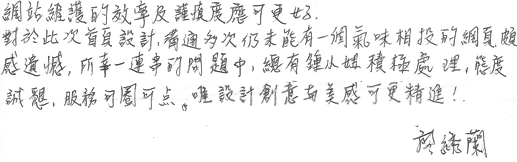 網站維護的效率及護複度應可更好.
對於此次首頁設計,溝通多次仍未能有一個氣味相投的網頁頗
感遺憾,所幸一連串的問題中,總有鍾小姐積極處理,態度
誠懇,服務可圈可点。唯設計創意与美感可更精進!.
綉蘭